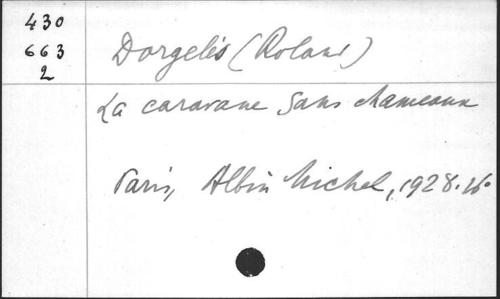 430
663
2
Dorgelès (Roland)
La caravane sans chameaux
Paris, Albin Michel, 1928. 16°